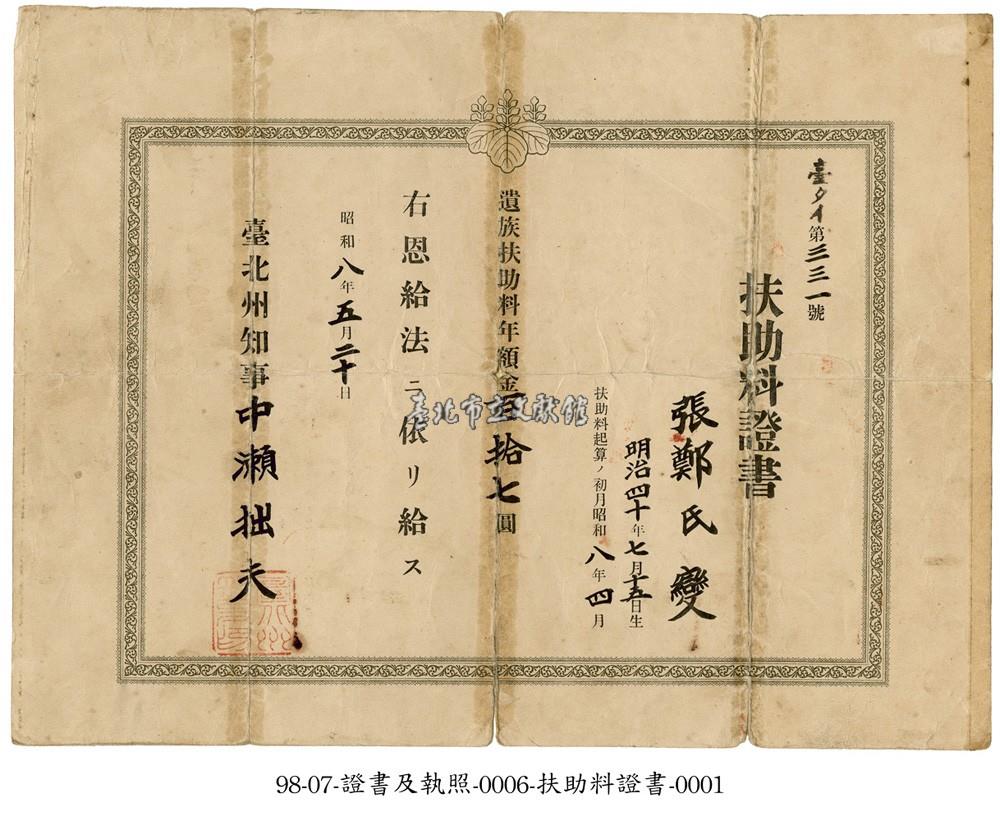 臺タイ第三三一號
扶助料證書
張鄭氏變
明治四十年七月十五日生
扶助料起算ノ初月昭和八年四月
遺族扶助料年額金百拾七圓
右恩給法ニ依リ給ス
昭和八年五月二十日
臺北州知事中瀬拙夫
臺北市立文献館
98-07-證書及執照-0006-扶助料證書-0001